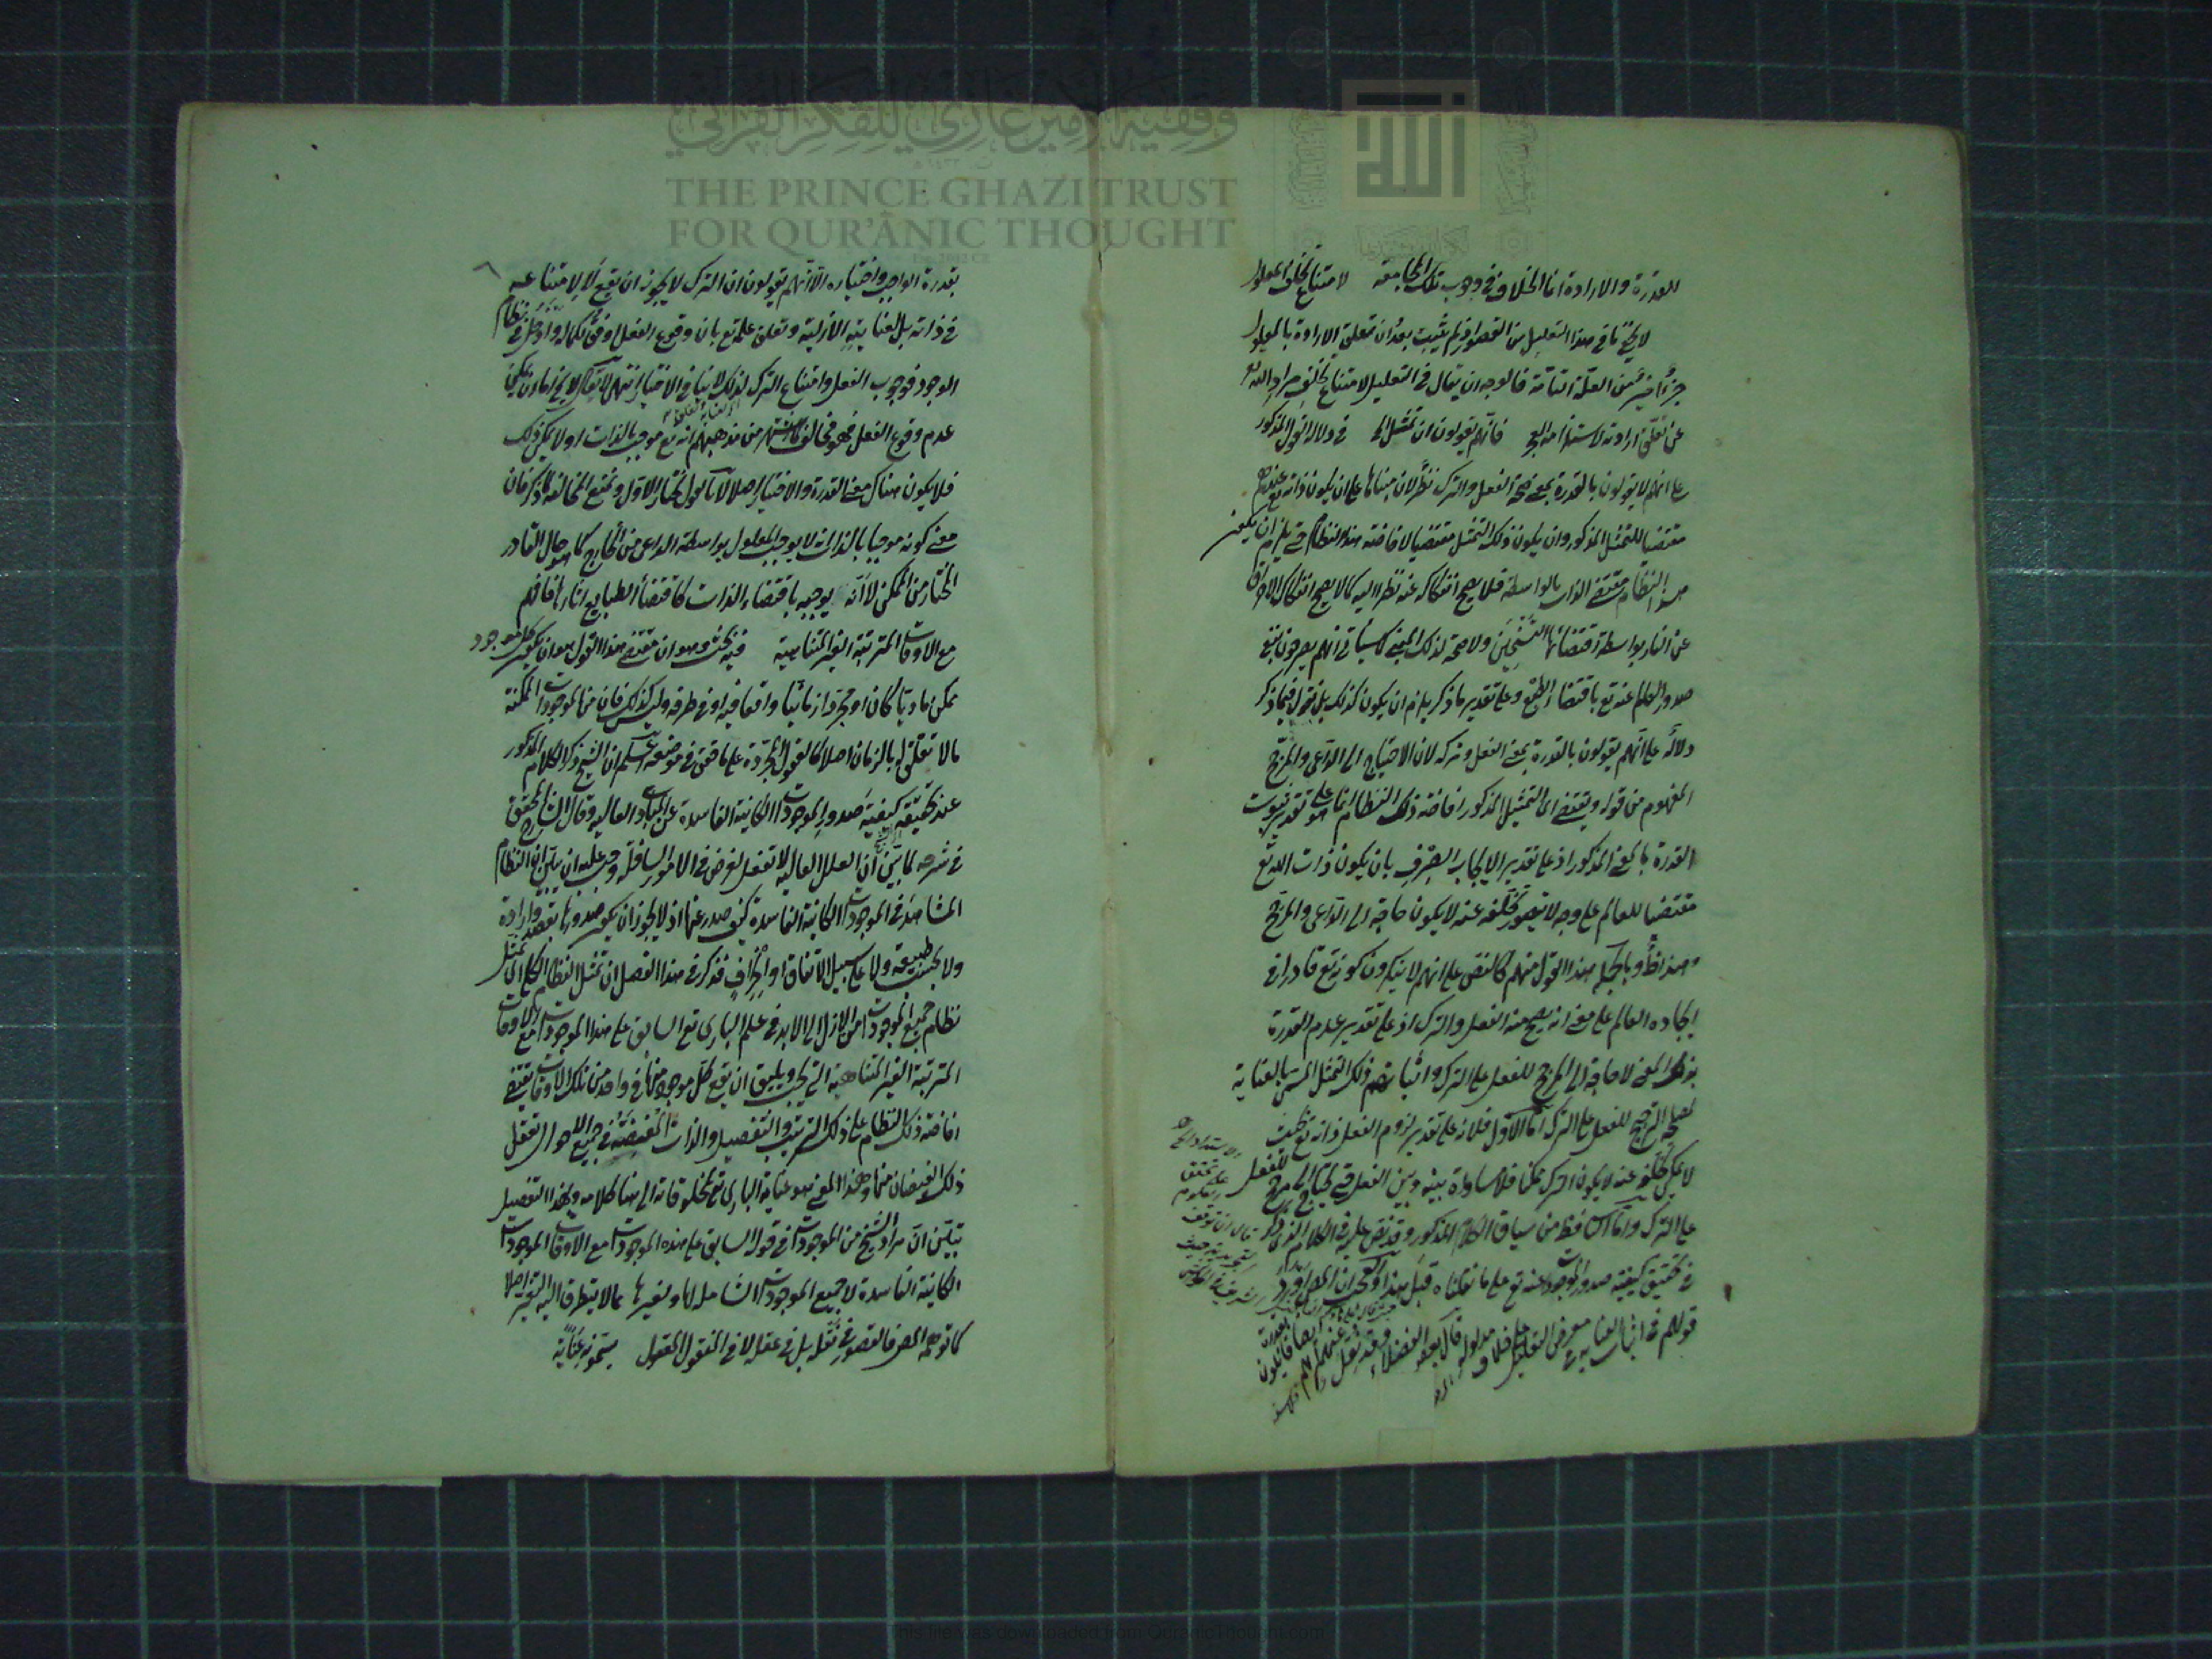 القدرة والارادة انما الخلاف في وجوب تلك المجامعة لامتناع تخلف المعلول
لا يخفى ما في هذا التعليل من القصور اذ لم يثبت بعد ان تعلق الارادة بالمعلول
جزء اخير من العلة التامة فالوجه ان يقال في التعليل لامتناع تخلف مراد الله تع
عن تعلق ارادته لاستلزامه العجز فانهم يقولون ان تمثل الخ في دلالة القول المذكور
على انهم لا يقولون بالقدرة بمعنى صحة الفعل والترك نظر لان مبناها على ان يكون ذاته تع عندهم
مقتضيا للتمثل المذكور وان يكون ذلك التمثل مقتضيا لافاضة هذا النظام حتى يلزم ان يكون
هذا النظام مقتضى الذات بالواسطة فلا يصح انفكاكه عنه نظرا اليه كما لا يصح انفكاك الاحراق
عن النار بواسطة اقتضائها التسخين ولا صحة لذلك المبنى كما سيأتي انهم يصرحون بنفي
صدور العالم عنه تع باقتضاء الطبع وعلى تقدير ما ذكر يلزم ان يكون كذلك بل نقول فيما ذكر
دلالة على انهم يقولون بالقدرة بمعنى الفعل وتركه لان الاحتياج الى الداعي والمرجح
المفهوم من قوله ويقتضي اى التمثيل المذكور افاضة ذلك النظام انما هو على تقدير ثبوت
القدرة بالمعنى المذكور اذ على تقدير الايجاب الصرف بان يكون ذات الله تع
مقتضيا للعالم على وجه لا يتصور تخلفه عنه لا يكون حاجة الى الداعي والمرجح
وهذا ظ وبالجملة هذا القول منهم كالنص على انهم لا ينكرون كونه تع قادرا في
ايجاده العالم على معنى انه يصح منه الفعل والترك اذ على تقدير عدم القدرة
بذلك المعنى لا حاجة الى المرجح للفعل على الترك واثباتهم ذلك التمثل المسمى بالعناية
لمصلحة الترجيح للفعل على الترك اما الاول فلانه على تقدير لزوم الفعل ذاته تع بحيث
لا يمكن تخلفه عنه لا يكون الترك ممكنا فلا مساواة بينه وبين الفعل حتى يحتاج الى مرجح للفعل
على الترك واما الثاني فظ من سياق الكلام المذكور وقد نص عليه في الكلام الذي ذكر
في تحقيق كيفية صدور الموجودات عنه تع على ما نقلناه قبل هذا والعجب ان المص اورد
قولهم في اثبات العناية في معرض التعليل على خلاف مدلوله قال بعض الفضلاء وقد نقل عنهم انهم ايضا قائلون
بقدرة الواجب واختياره الا انهم يقولون ان الترك لا يجوز ان يقع لا لامتناعه
في ذاته بل لعنايته الازلية وتعلق علمه تع بان وقوع الفعل اوفق بكماله وادخل في نظام
الوجود فوجوب الفعل وامتناع الترك لذلك لا ينافي الاختيار انتهى لا يقال لا يخ اما ان يمكن
عدم وقوع الفعل فهو مخالف لما اشتهر من مذهبهم انه تع موجب بالذات او لا يمكن ذلك
فلا يكون هناك معنى القدرة والاختيار اصلا لانا نقول نختار الاول ونمنع المخالفة لما ذكر فان
معنى كونه موجبا بالذات انه لا يوجب المعلول بواسطة الداعي من الخارج كما هو حال القادر
المختار من الممكن لا انه يوجبه باقتضاء الذات كاقتضاء الطبايع اثارها فافهم
مع الاوقات المترتبة الغير المتناهية فيه بحث وهو ان مقتضى هذا القول هو ان يكون كل موجود
ممكن ماديا كان او مجردا زمانيا واقعا فيه او في طرفه وليس كذلك فان من الموجودات الممكنة
ما لا تعلق له بالزمان اصلا كالعقول المجردة على ما حقق في موضعه اعلم ان الشيخ ذكر الكلام المذكور
عند تحقيقه كيفية صدور الموجودات الكاينة الفاسدة عن المبادى العالية وقال الشارح المحقق
في شرحه لما بين ان العلل العالية لا تفعل لغرض في الامور السافلة وجب عليه ان يبين ان النظام
المشاهد في الموجودات الكاينة الفاسدة كيف صدر عنها اذ لا يجوز ان يكون صدورها بقصد وارادة
ولا بحسب طبيعة ولا على سبيل الاتفاق او الجزاف فذكر في هذا الفصل ان تمثل النظام الكلي اى تمثل
نظام جميع الموجودات من الازل الى الابد في علم البارى تع السابق على هذه الموجودات مع الاوقات
المترتبة الغير المتناهية التي يجب ويليق ان يقع كل موجود منها في واحد من تلك الاوقات يقتضي
افاضة ذلك النظام على ذلك الترتيب والتفصيل والذات المفيضة في جميع الاحوال تعقل
ذلك الفيضان منها وهذا المعنى هو عناية البارى تع بمخلوقاته الى هنا كلامه وبهذا التفصيل
تبين ان مراد الشيخ من الموجودات في قوله السابق على هذه الموجودات مع الاوقات الموجودات
الكاينة الفاسدة لا جميع الموجودات الشاملة لها ولغيرها مما لا يتطرق اليه التغير اصلا
كما توهمه المص فالقصور في نقله بل في عقله لا في المنقول المعقول يسمونه عناية
وقفية الأمير غازي للفكر القرآني
THE PRINCE GHAZI TRUST
FOR QUR'ĀNIC THOUGHT
This file was downloaded from QuranicThought.com